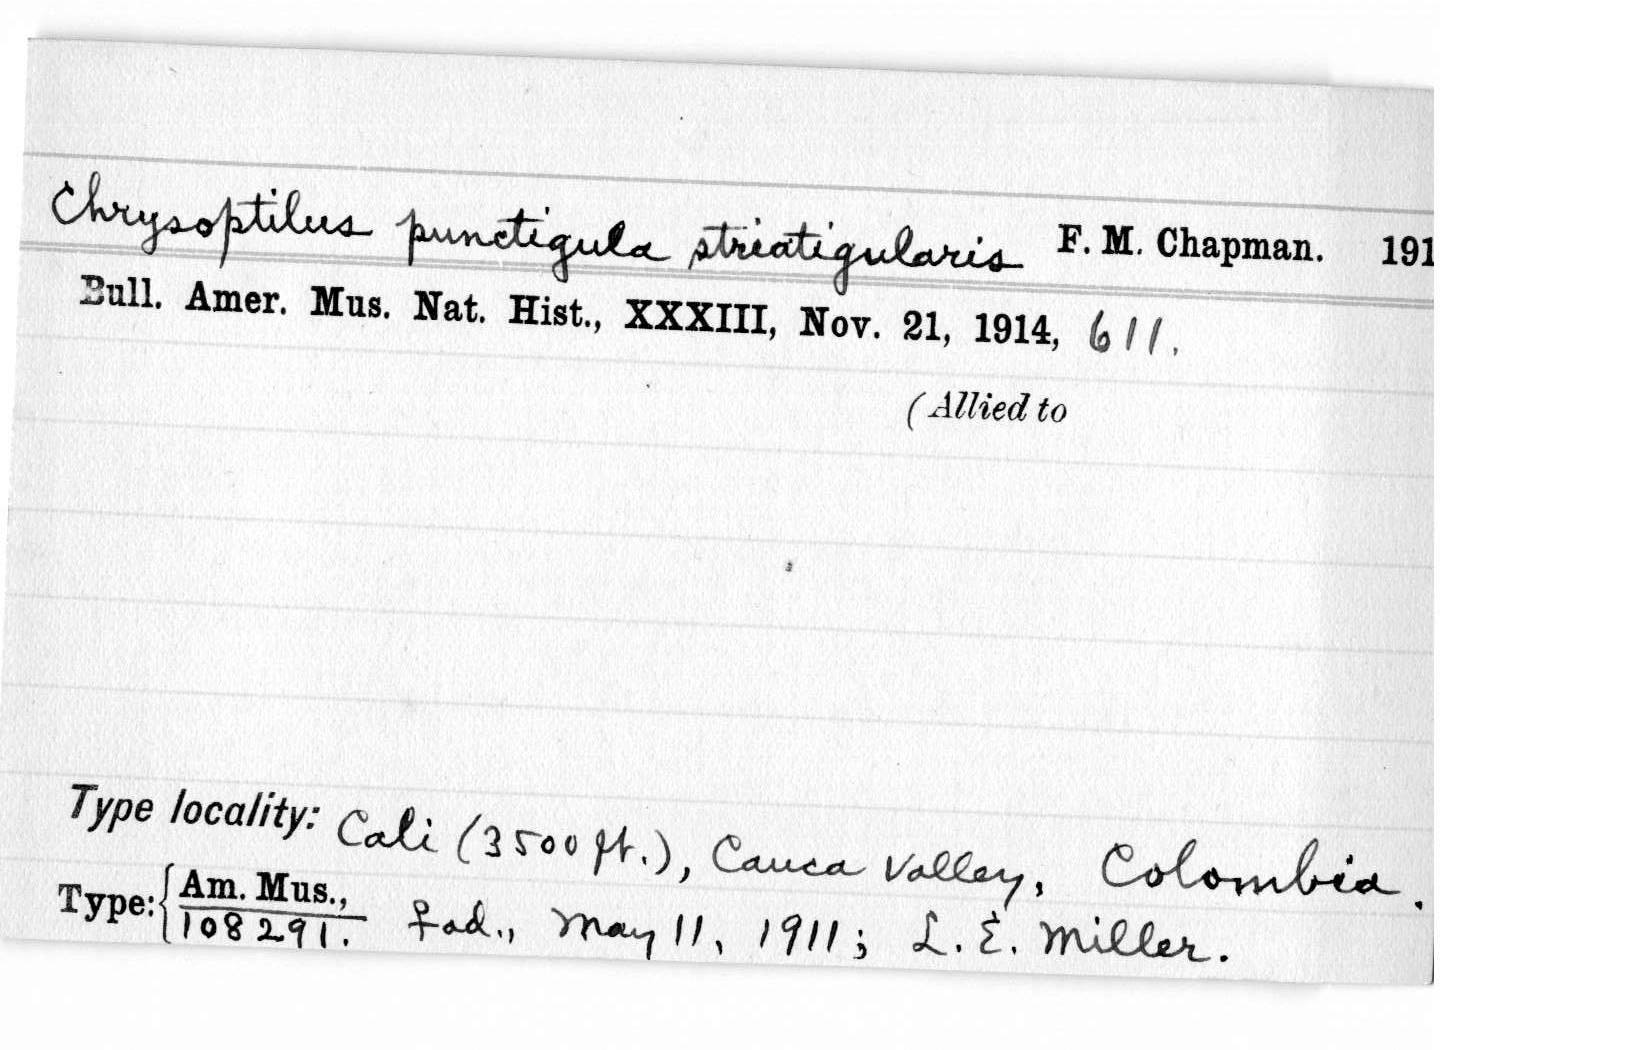 Chrysoptilus punctigula striatigularis F. M. Chapman. 191
Bull. Amer. Mus. Nat. Hist., XXXIII, Nov. 21, 1914, 611.
(Allied to
Type locality: Cali (3500 ft.), Cauca Valley, Colombia.
Type: { Am. Mus.,
108291. ♀ ad., May 11, 1911; L. E. Miller.